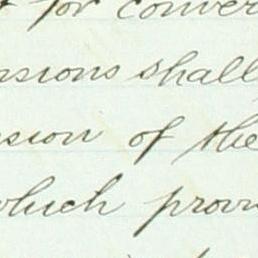 for conver
nsions shall
sion of the
which provi